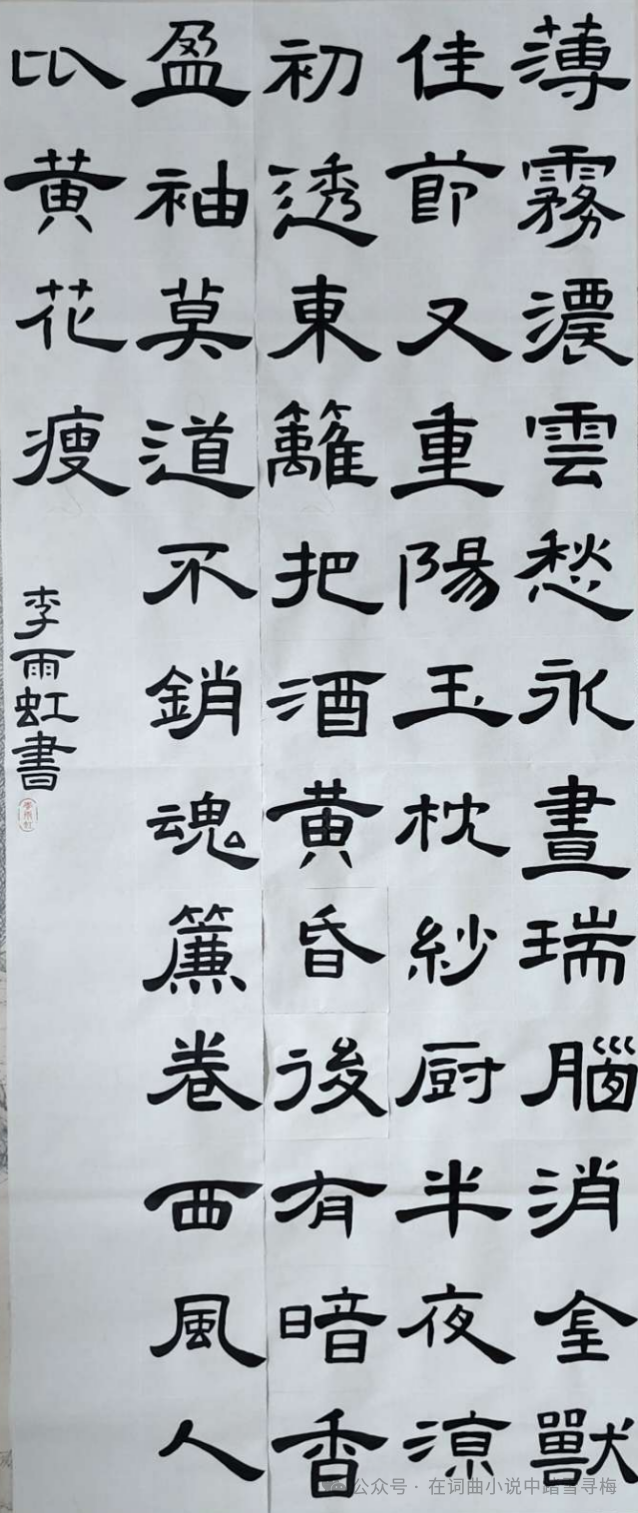 薄霧濃雲愁永晝瑞腦消金獸
佳節又重陽玉枕紗厨半夜涼
初透東籬把酒黄昏後有暗香
盈袖莫道不銷魂簾卷西風人
比黄花瘦
李雨虹書
李雨虹
公众号·在词曲小说中踏雪寻梅